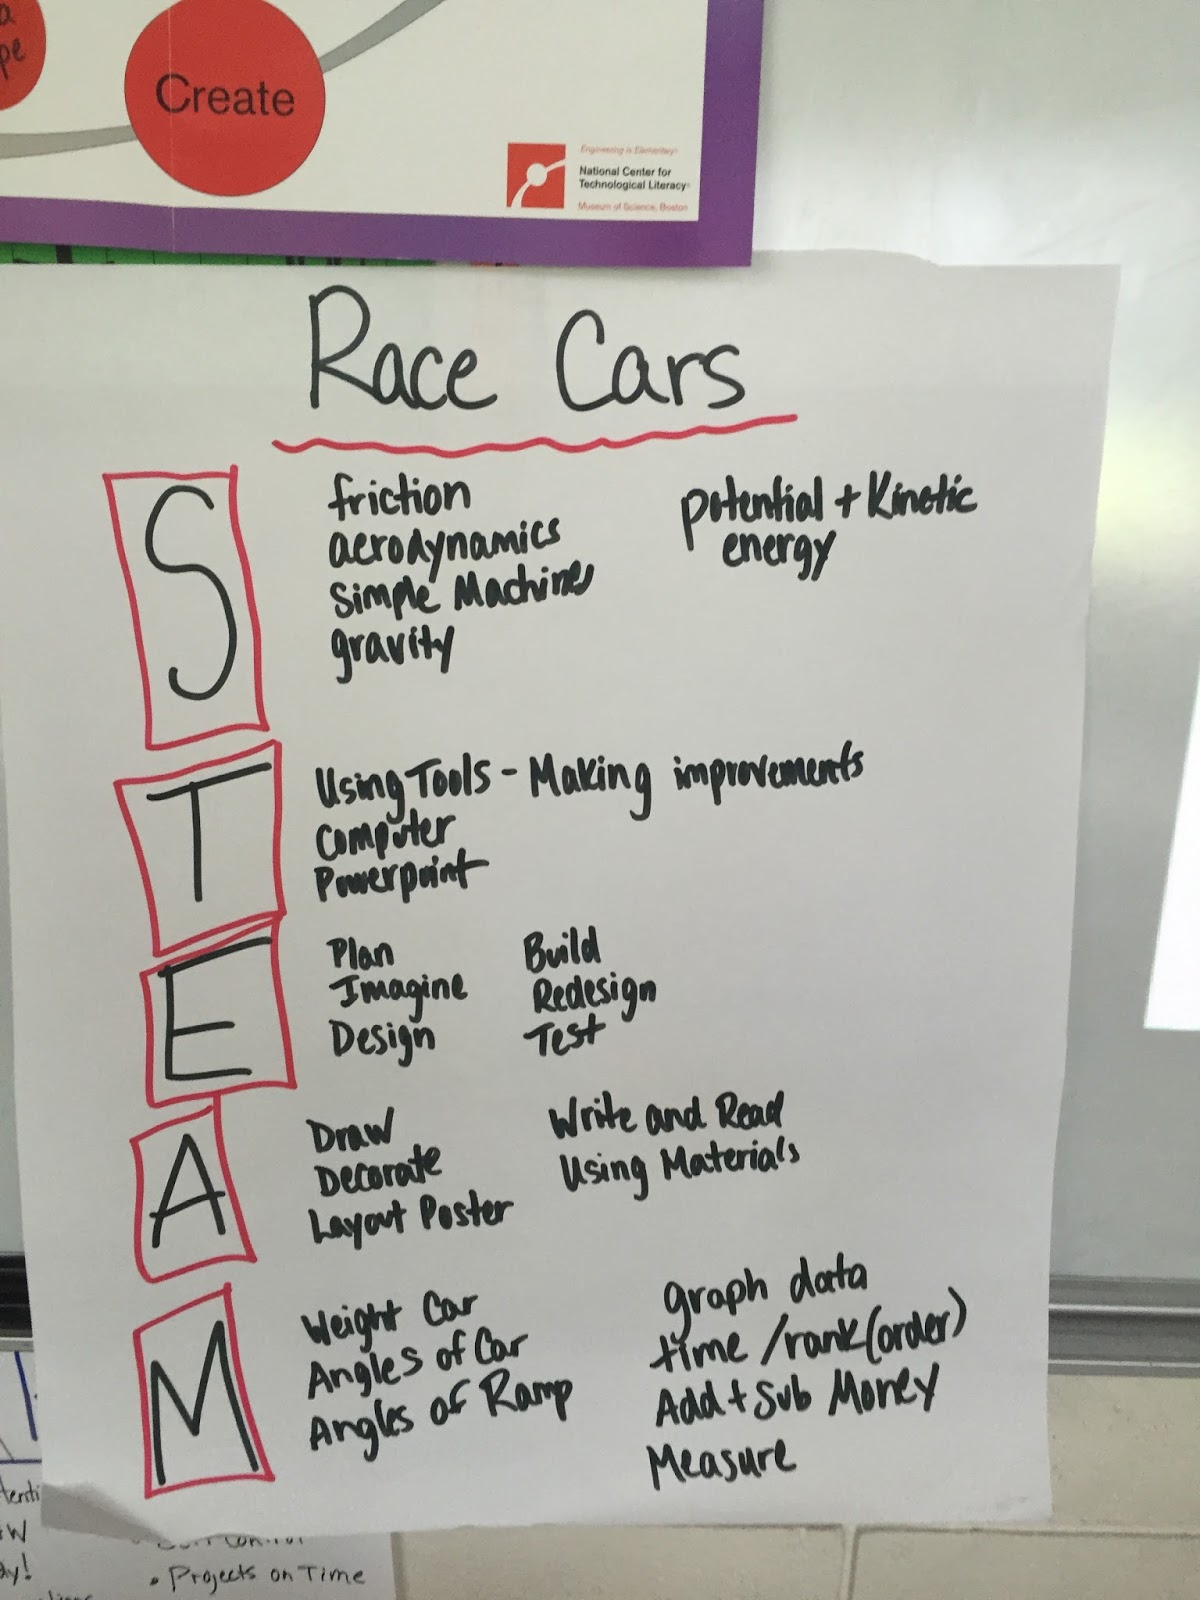 a
pe
Create
Engineering is Elementary®
National Center for
Technological Literacy®
Museum of Science, Boston
Race Cars
S
friction
aerodynamics
Simple Machines
gravity
potential + Kinetic
energy
T
Using Tools - Making improvements
Computer
Powerpoint
E
Plan
Imagine
Design
Build
Redesign
Test
A
Draw
Decorate
Layout Poster
Write and Read
Using Materials
M
Weight Car
Angles of Car
Angles of Ramp
graph data
time /rank (order)
Add + Sub Money
Measure
• Projects on Time